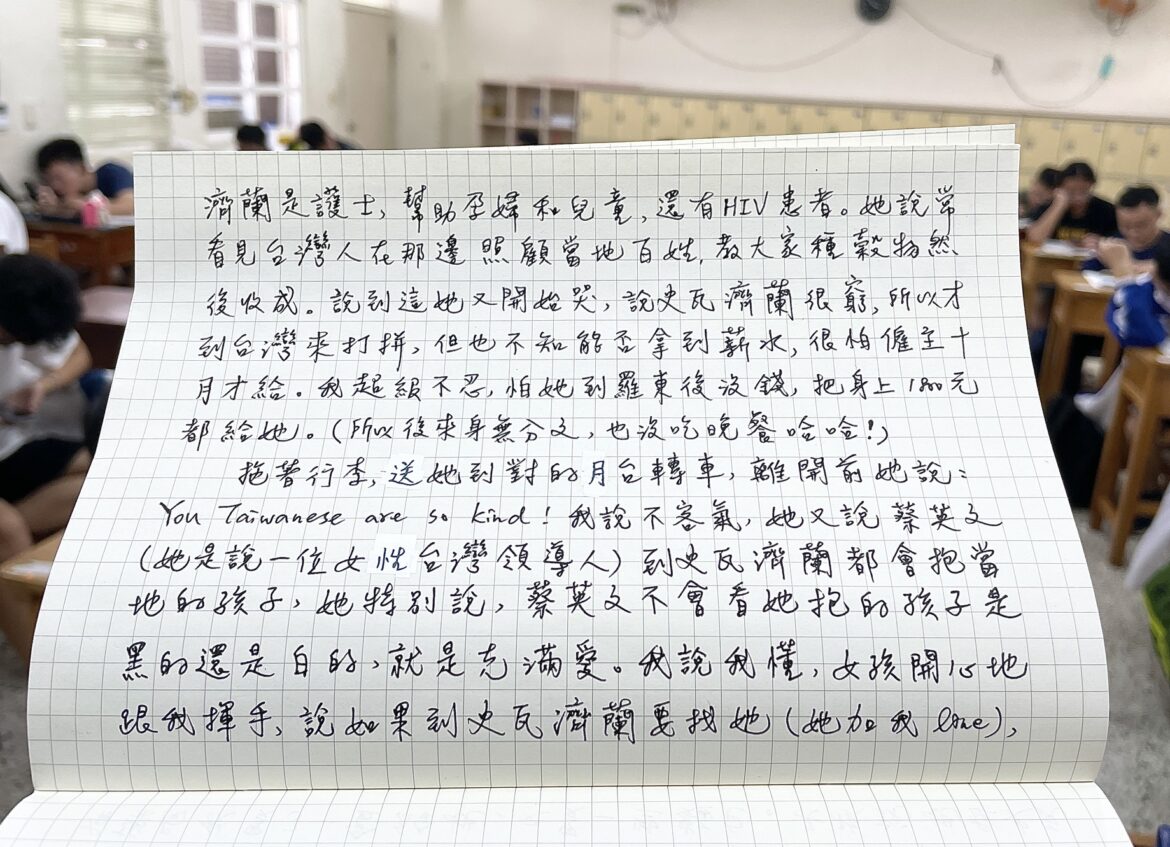 濟蘭是護士，幫助孕婦和兒童，還有HIV患者。她說常
看見台灣人在那邊照顧當地百姓，教大家種穀物然
後收成。說到這她又開始哭，說史瓦濟蘭很窮，所以才
到台灣來打拼，但也不知能否拿到薪水，很怕僱主十
月才給。我超級不忍，怕她到羅東後沒錢，把身上1800元
都給她。（所以後來身無分文，也沒吃晚餐哈哈！）
拖著行李，送她到對的月台轉車，離開前她說：
You Taiwanese are so kind！我說不客氣，她又說蔡英文
（她是說一位女性台灣領導人）到史瓦濟蘭都會抱當
地的孩子，她特別說，蔡英文不會看她抱的孩子是
黑的還是白的，就是充滿愛。我說我懂，女孩開心地
跟我揮手，說如果到史瓦濟蘭要找她（她加我line），